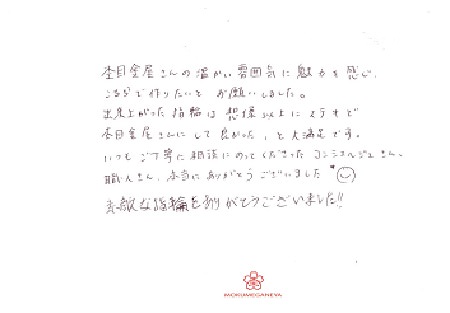 杢目金屋さんの温かい雰囲気に魅力を感じ、
こちらで作りたいと お願いしました。
出来上がった 指輪は 想像以上に ステキで
杢目金屋さんにして 良かった、と 大満足です。
いつも ご丁寧に 相談に のって くださった コンシェルジュさん、
職人さん、本当に ありがとう ございました
素敵な指輪をありがとうございました!!
MOKUMEGANEYA